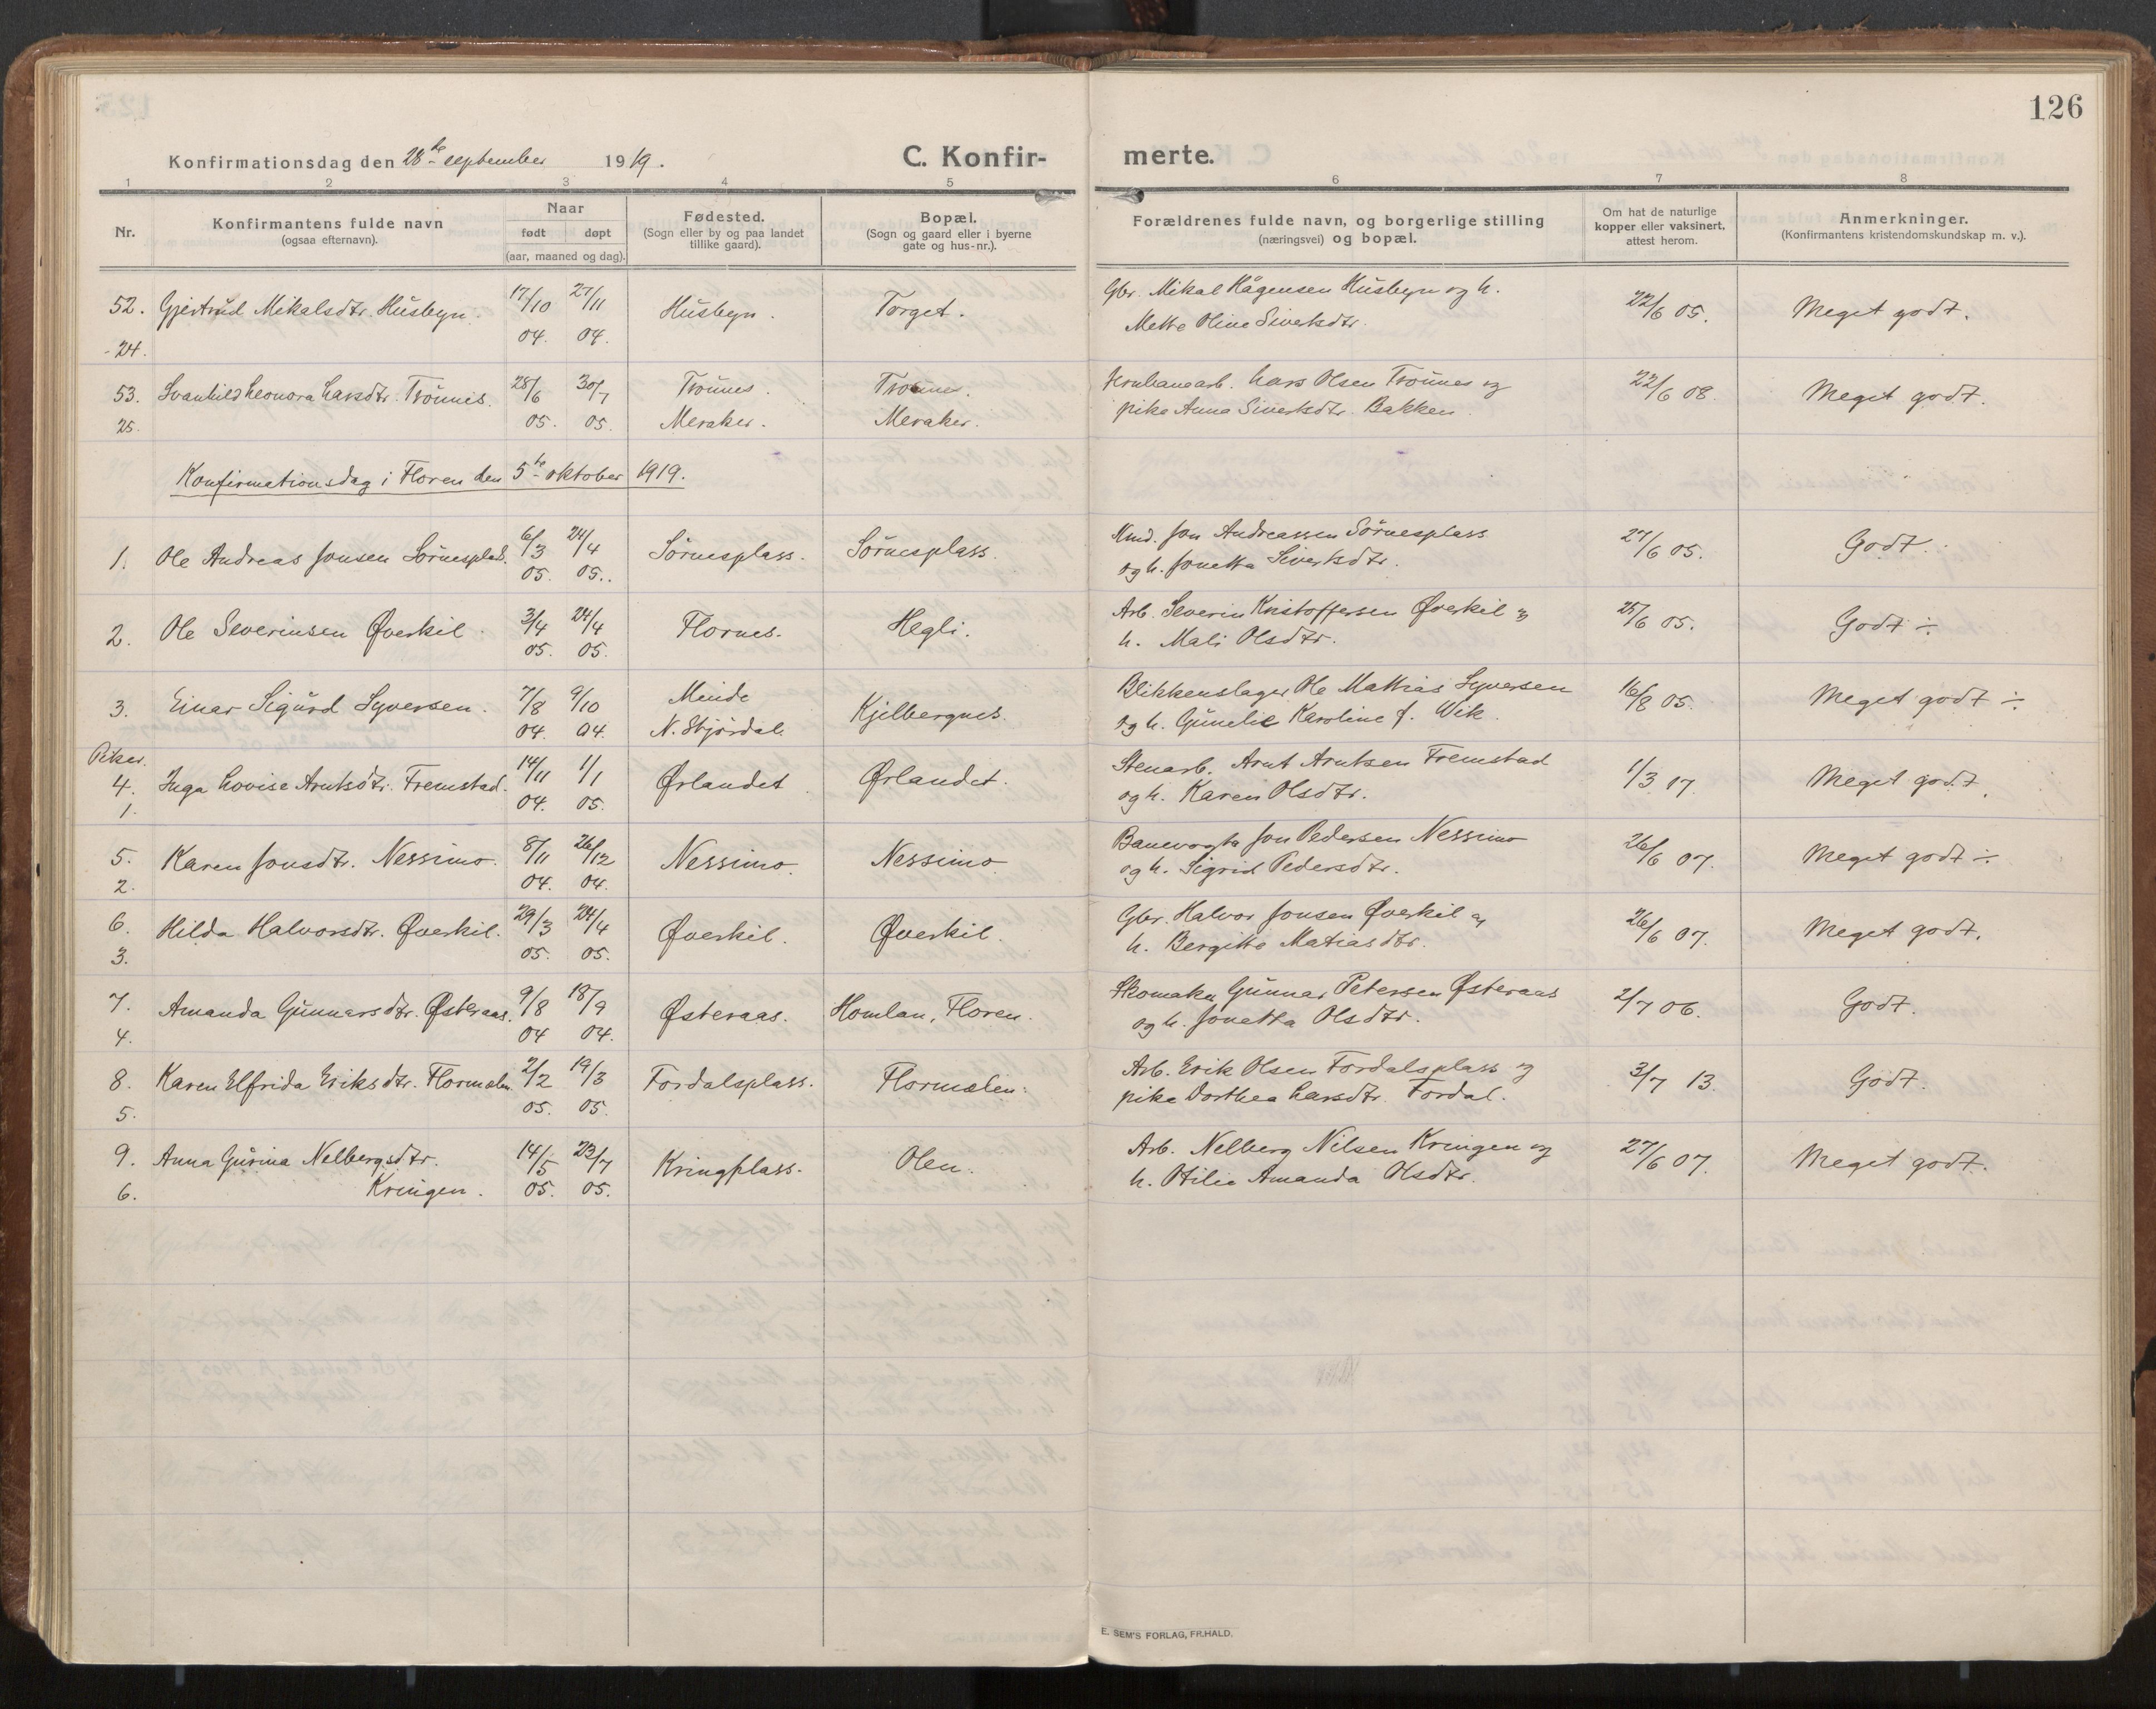 126
Konfirmationsdag den 28de september 1919.
C. Konfirmerte.
1 2 3 4 5 6 7 8
Nr.
Konfirmantens fulde navn
(ogsaa efternavn).
Naar
født døpt
(aar, maaned og dag).
Fødested.
(Sogn eller by og paa landet
tillike gaard).
Bopæl.
(Sogn og gaard eller i byerne
gate og hus-nr.).
Forældrenes fulde navn, og borgerlige stilling
(næringsvei) og bopæl.
Om hat de naturlige
kopper eller vaksinert,
attest herom.
Anmerkninger.
(Konfirmantens kristendomskundskap m. v.).
52. Gjertrud Mikalsdtr. Husbyn. 17/10 04. 27/11 04. Husbyn. Torget. Gbr. Mikal Hågensen Husbyn og h. 22/6 05. Meget godt.
24. Mette Oline Sivertsdtr.
53. Svanhild Leonora Larsdtr. Trönnes. 28/6 05. 30/7 05. Trönnes. Trönne. Jernbanearb. Lars Olsen Trönnes og 22/6 08. Meget godt.
25. Meraker. Meraker. pike Anna Sivertsdtr. Bakken.
Konfirmationsdag i Floren den 5te oktober 1919.
1. Ole Andreas Jonsen Sörnesplass. 6/3 05. 24/4 05. Sörnesplass. Sörnesplass. Kmd. Jon Andreassen Sörnesplass 27/6 05. Godt.
og h. Jonetta Sivertsdtr.
2. Ole Severinsen Øverkil. 3/4 05. 24/4 05. Flornes. Hegli. Arb. Severin Kristoffersen Øverkil og 25/6 05. Godt ÷
h. Mali Olsdtr.
3. Einar Sigurd Syversen. 7/8 04. 9/10 04. Minde Kjelbergnes. Blikkenslager Ole Mathias Syversen 16/8 05. Meget godt ÷
N. Stjördal. og h. Gunelie Karoline f. Wik.
Piker.
4. Inga Lovise Arntsdtr. Fremstad. 14/11 04. 1/1 05. Ørlandet. Ørlandet. Stenarb. Arnt Arntsen Fremstad 1/3 17. Meget godt.
1. og h. Karen Olsdtr.
5. Karen Jonsdtr. Nessimo. 8/11 04. 26/12 04. Nessimo. Nessimo. Banevogter Jon Pedersen Nessimo 26/6 07. Meget godt ÷
2. og h. Sigrid Pedersdtr.
6. Hilda Halvorsdtr. Øverkil. 29/3 05. 24/4 05. Øverkil. Øverkil. Gbr. Halvor Jonsen Øverkil og 26/6 07. Meget godt.
3. h. Bergitte Matiasdtr.
7. Amanda Gunnarsdtr. Østeraas. 9/8 04 18/9 04. Østeraas. Homlan, Floren. Skomaker Gunnar Petersen Østeraas 2/7 06. Godt.
4. og h. Jonetta Olsdtr.
8. Karen Elfrida Eriksdtr. Flormælen. 2/2 05. 19/3 05. Fordalsplass. Flormælen. Arb. Erik Olsen Fordalsplass og 3/7 13. Godt.
5. pike Dorthea Larsdtr. Fordal.
9. Anna Gurina Nelbergsdtr. 14/5 05. 23/7 05. Kringplass. Olen. Arb. Nelberg Nilsen Kringen og 27/6 07. Meget godt.
6. Kringen. h. Otilie Amanda Olsdtr.
E. SEM'S FORLAG, FR.HALD.